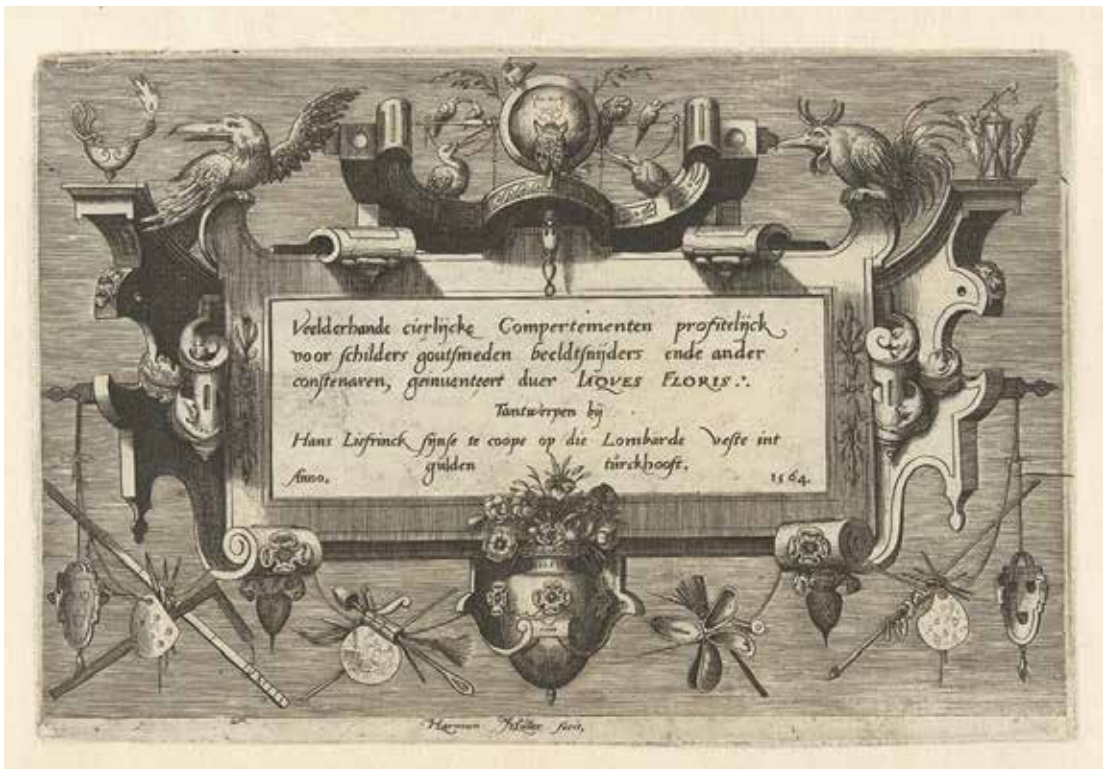 Veelderhande cierlijcke Compertementen profitelijck
voor schilders goutsmeden beeldtsnijders ende ander
constenaren, geinuanteert duer IAQVES FLORIS.
Tantwerpen bij
Hans Liefrinck sijnse te coope op die Lombarde veste int
Anno. gulden türckhooft. 1564.
Harman Muller fecit,